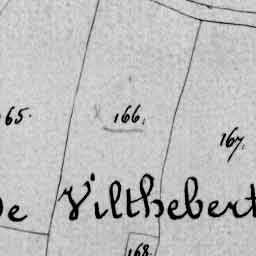 165.
166.
167.
De Vilthebert
168.